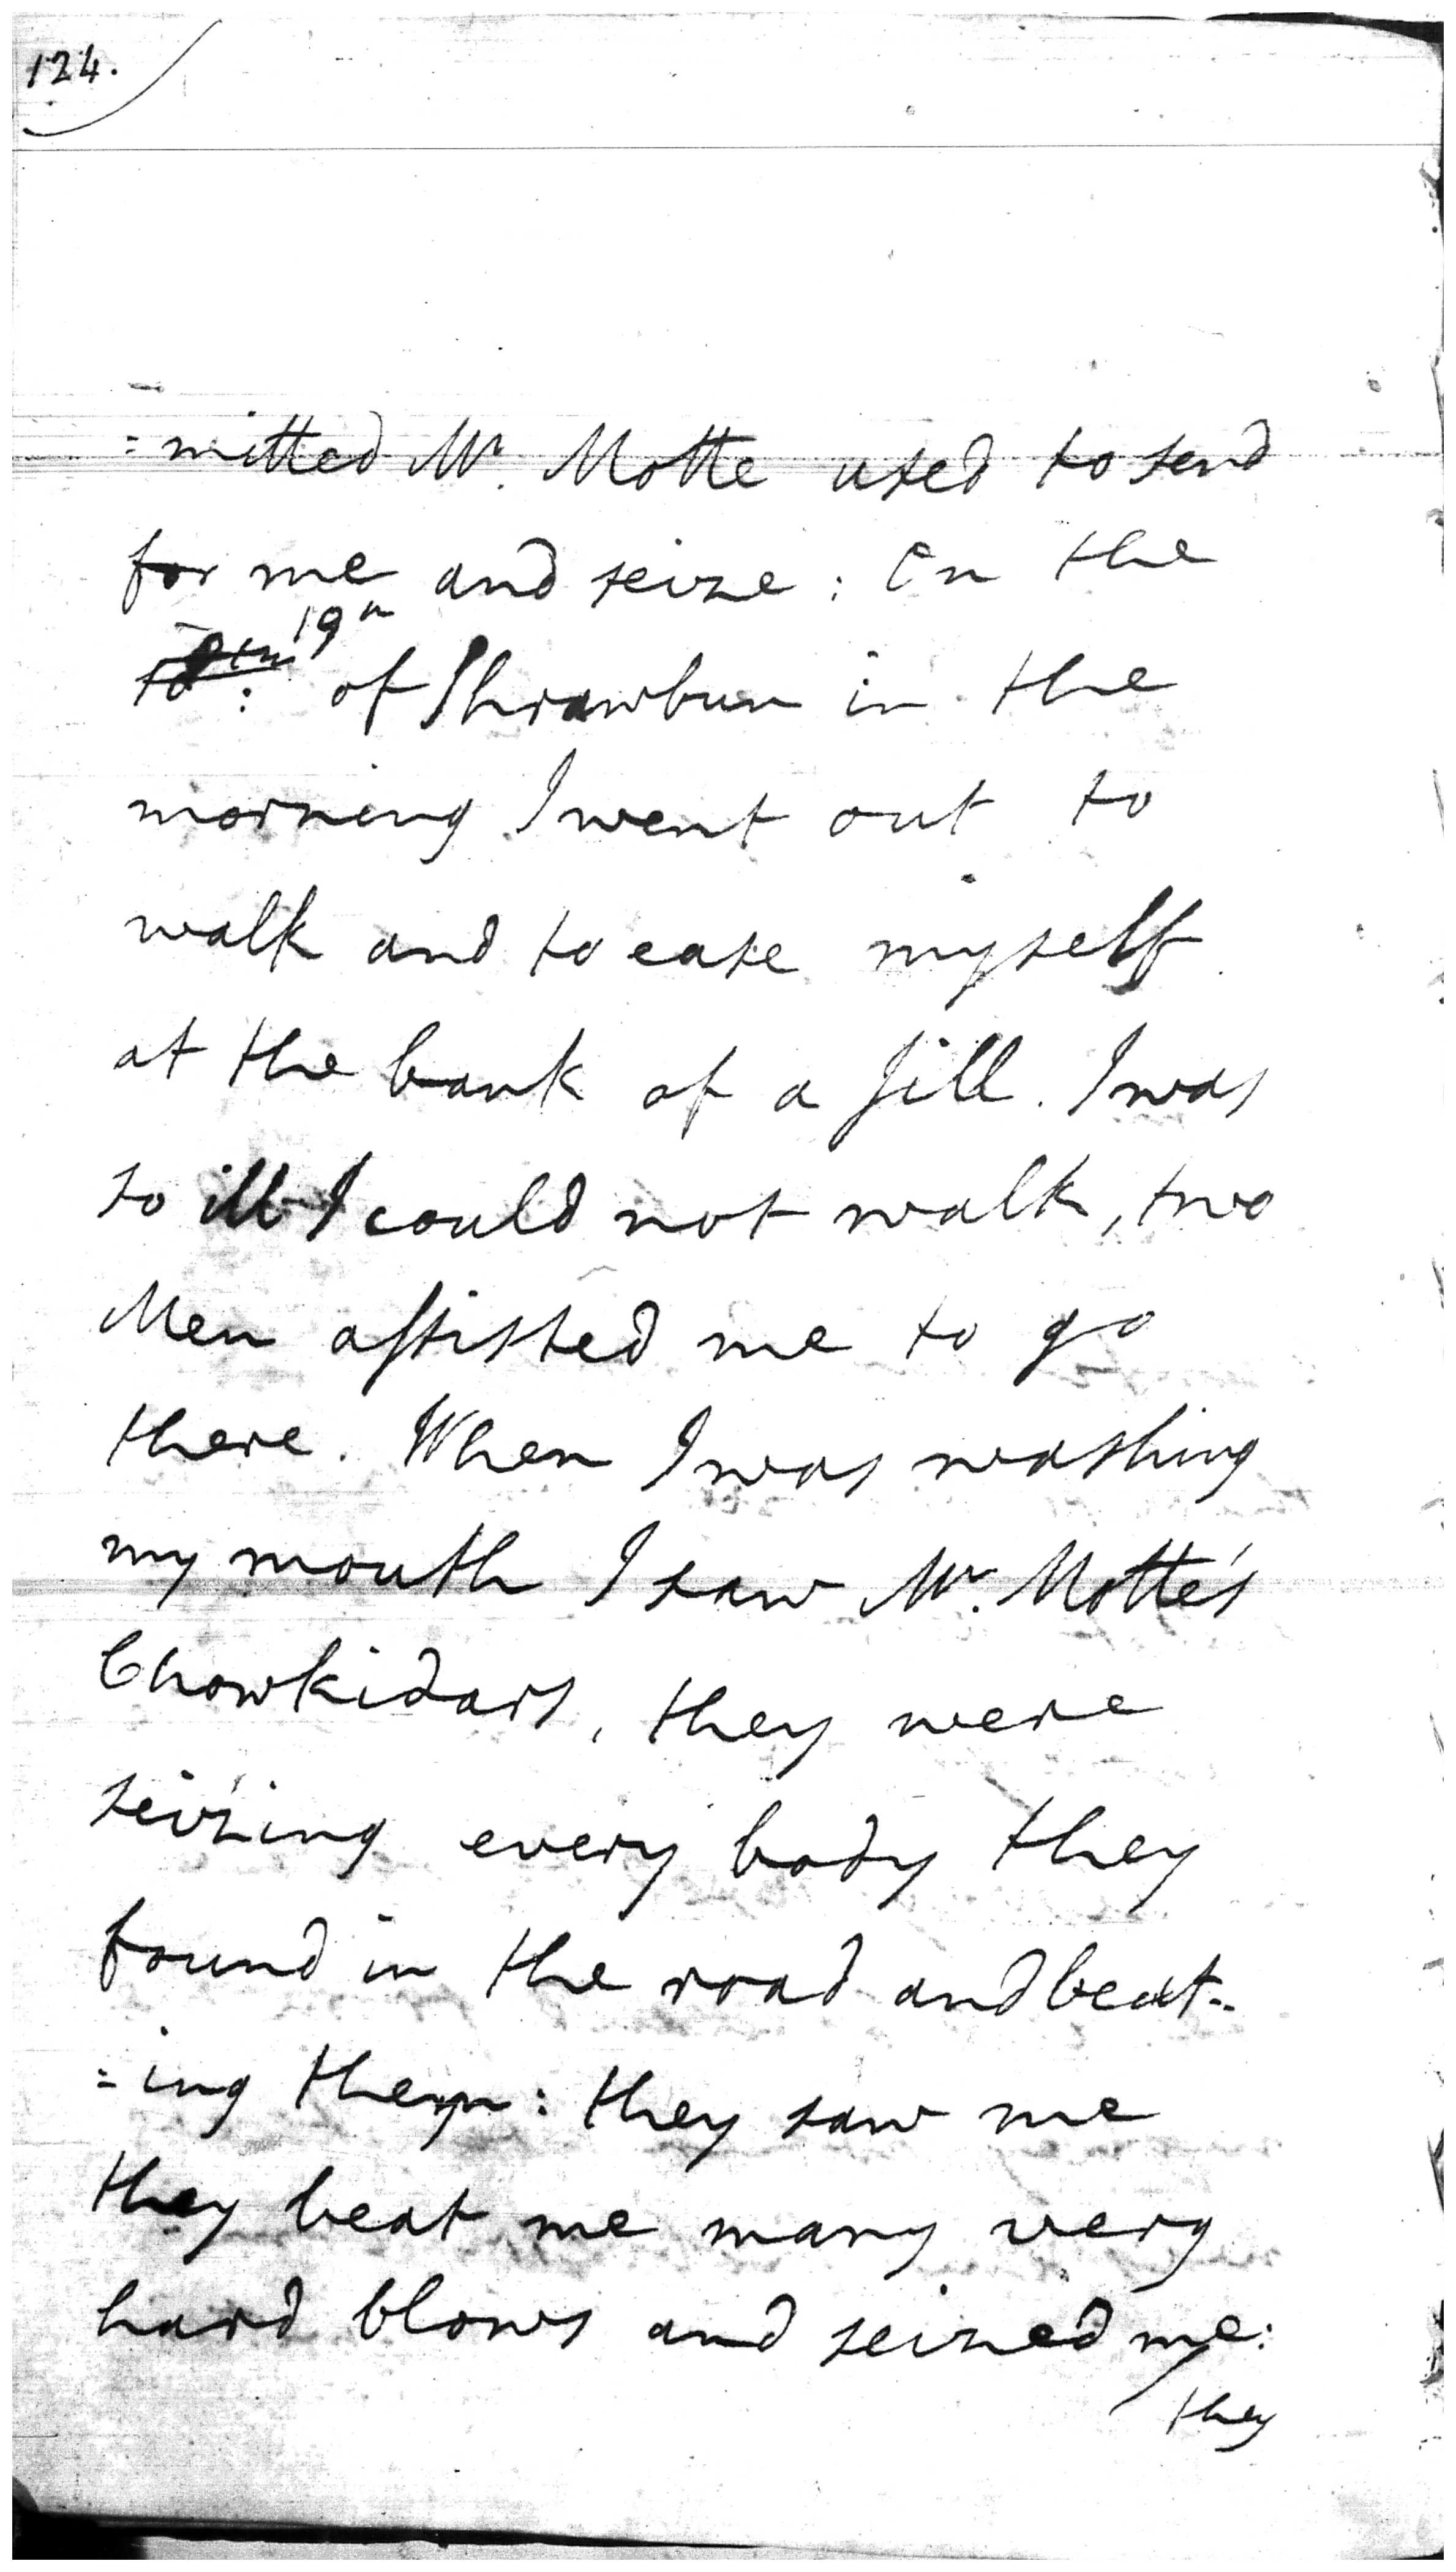 124.
=mitted Mr. Motte used to send
for me and seize: On the
19th
of Shrawbun in the
morning I went out to
walk and to ease myself
at the bank of a Jill. I was
so ill I could not walk, two
Men assisted me to go
there. When I was washing
my mouth I saw Mr. Motte's
Chowkidars, they were
seizing every body they
found in the road and beat-
=ing them: they saw me
they beat me many very
hard blows and seized me:
they